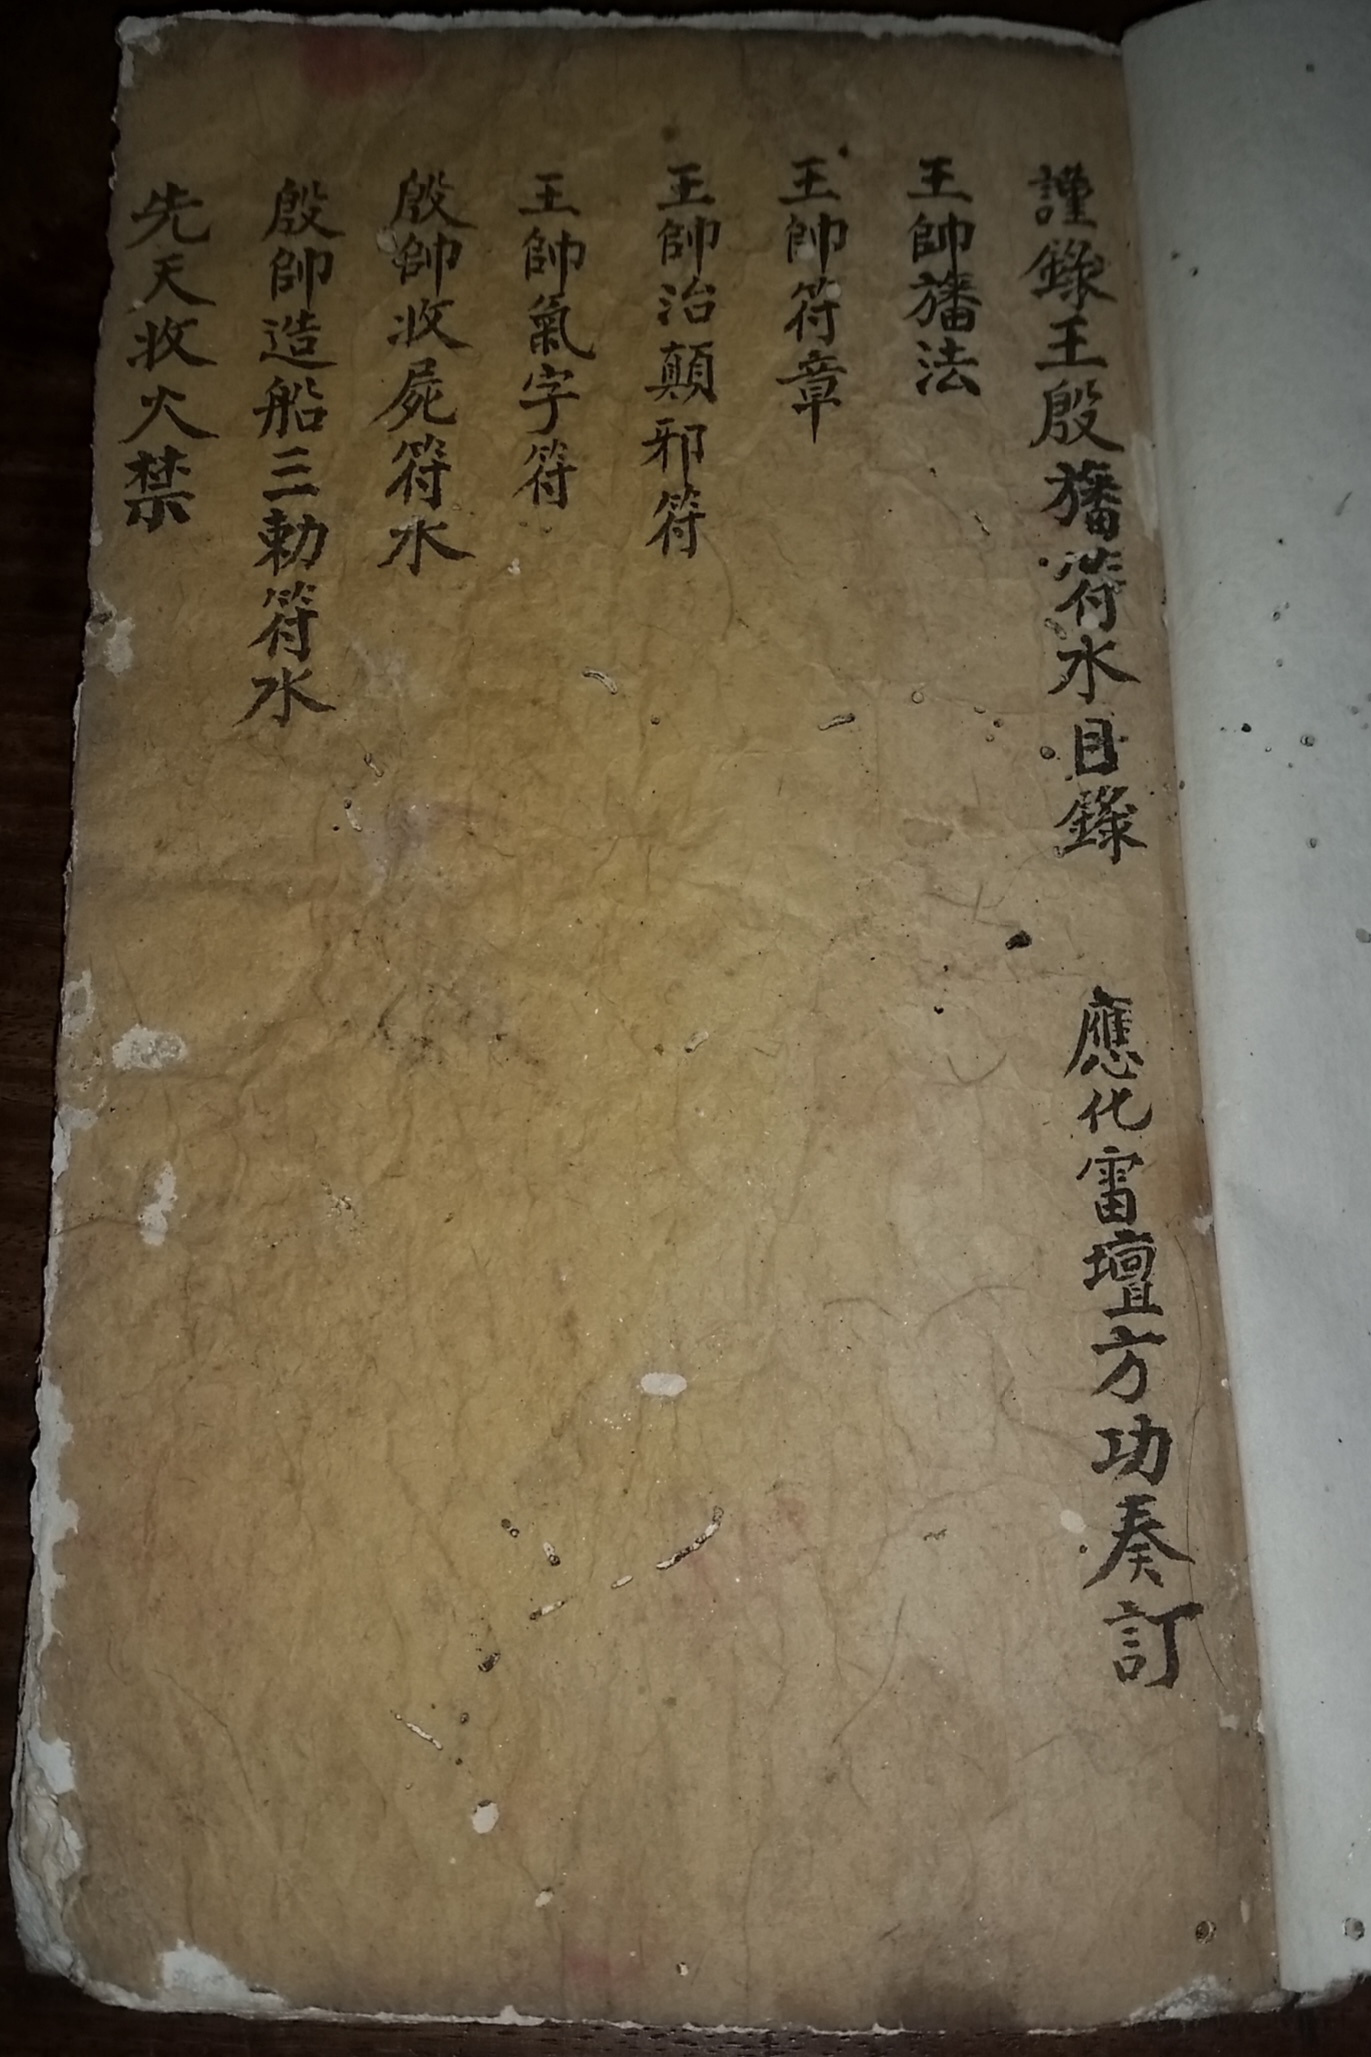 謹錄王殷旛符水目錄　應化雷壇方功奏訂
王帥旛法
王帥符章
王帥治顛邪符
王帥氣字符
殷帥收屍符水
殷帥造船三勅符水
先天收火禁